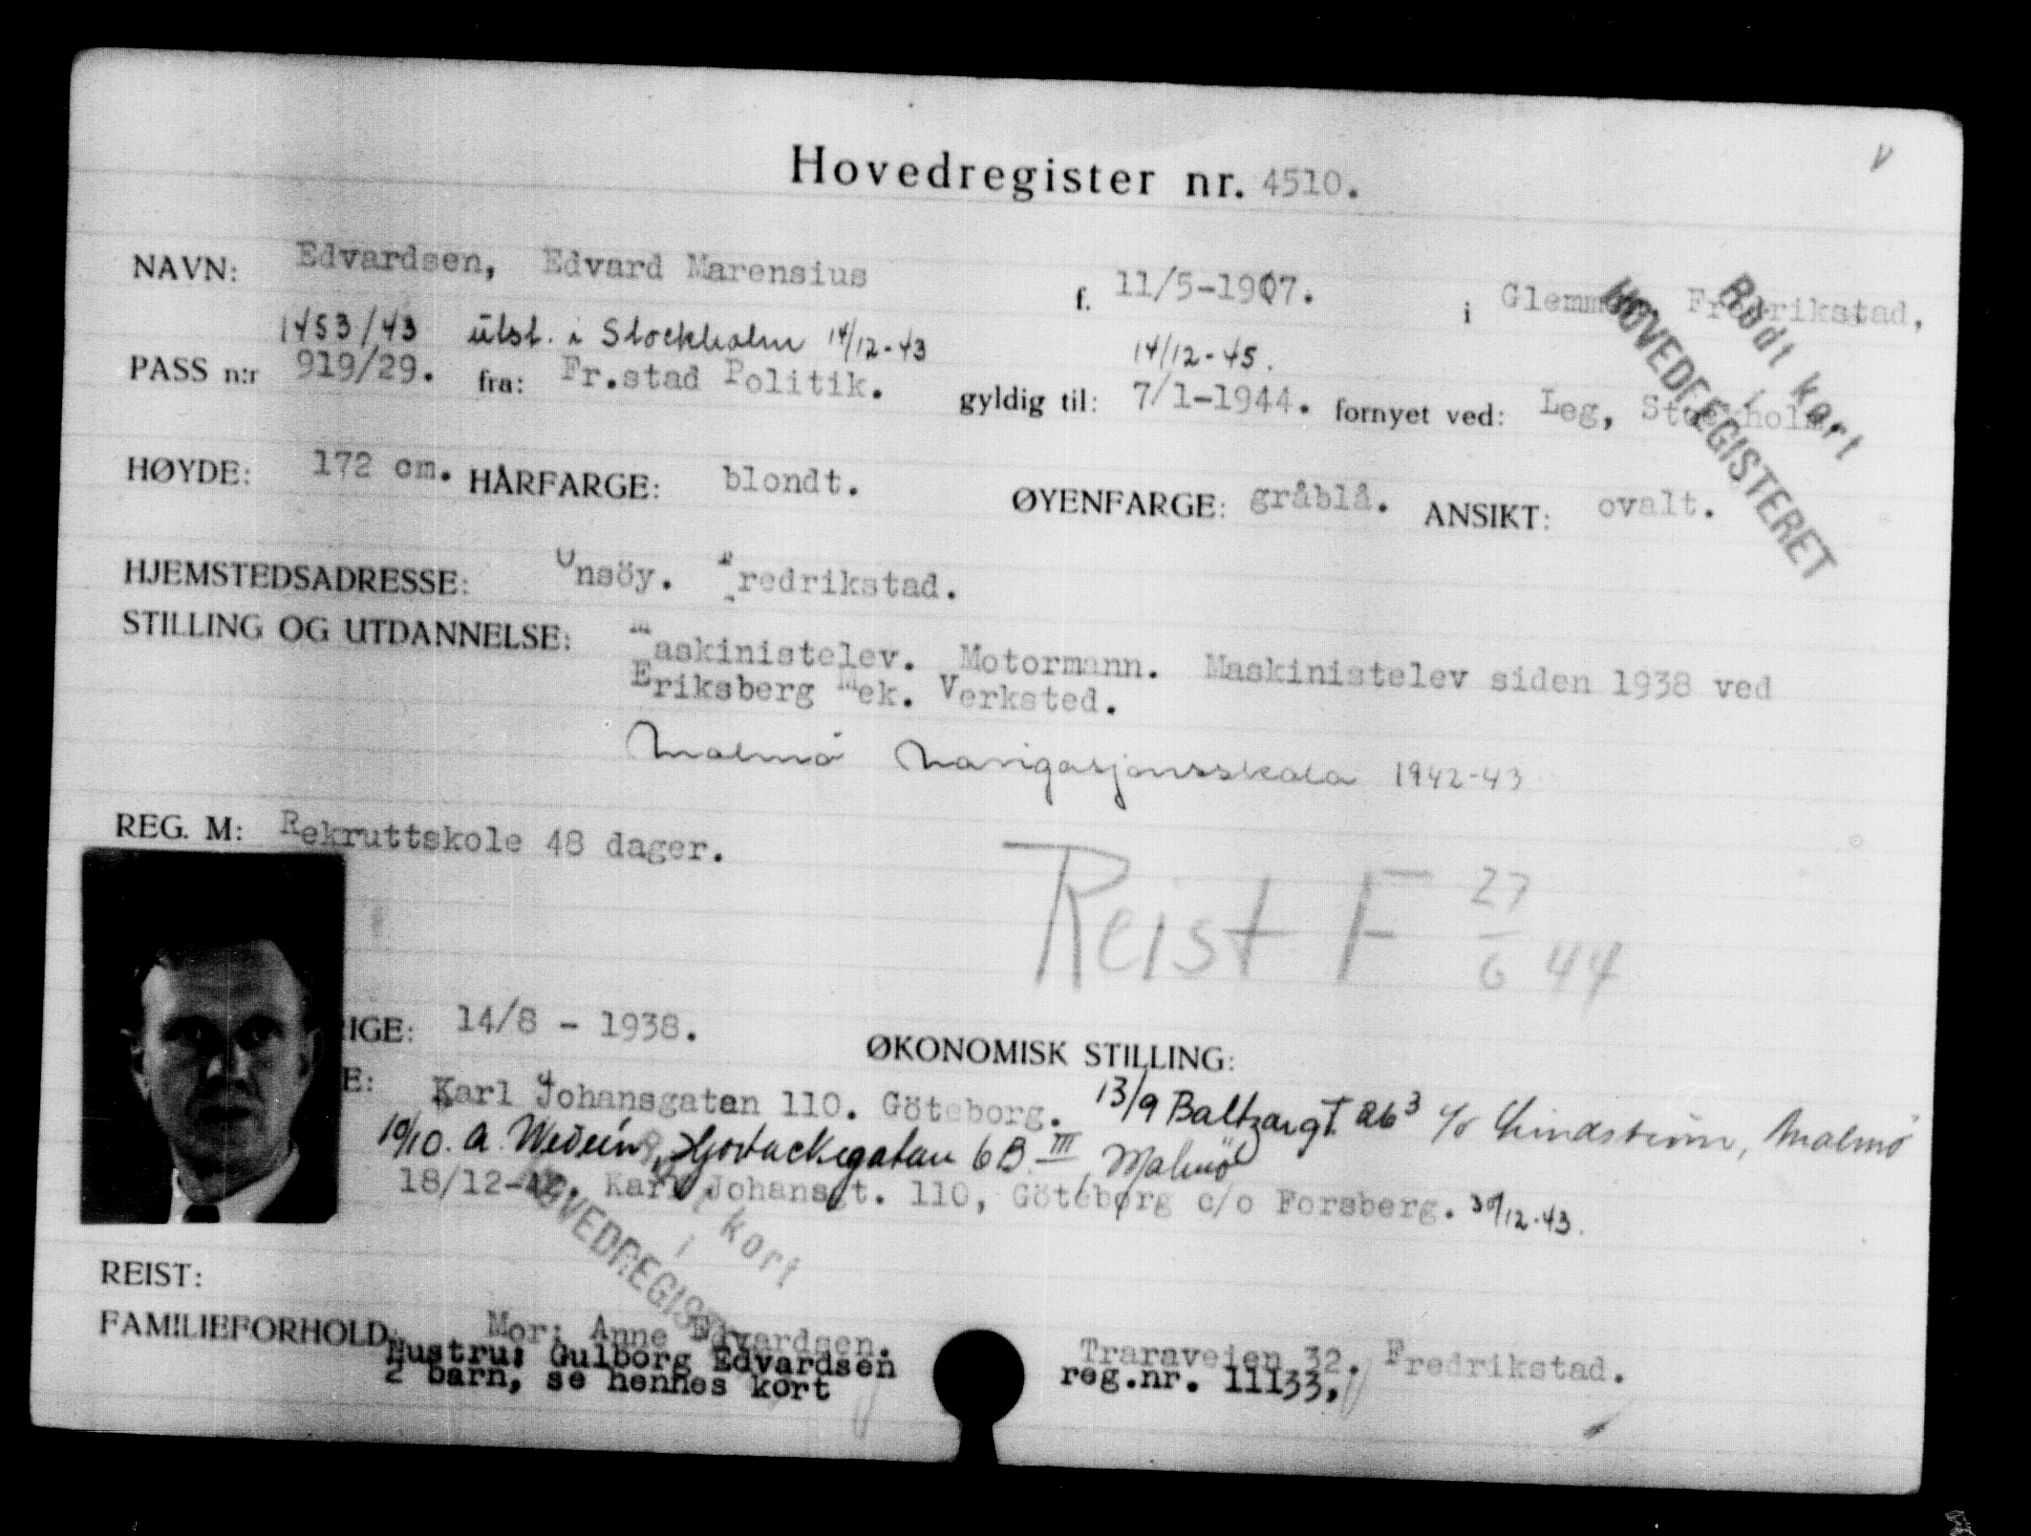 Hovedregister nr. 4510.
NAVN: Edvardsen, Edvard Marensius f. 11/5-1907. i Glemmen Fredrikstad,
1453/43 utst. i Stockholm 14/12-43 14/12-45.
PASS n:r 919/29. fra: Fr.stad Politik. gyldig til: 7/1-1944. fornyet ved: Leg, Stockholm.
Rødt kort
i
HOVEDREGISTERET
HØYDE: 172 cm. HÅRFARGE: blondt. ØYENFARGE: gråblå. ANSIKT: ovalt.
HJEMSTEDSADRESSE: Onsöy. Fredrikstad.
STILLING OG UTDANNELSE: Maskinistelev. Motormann. Maskinistelev siden 1938 ved
Eriksberg Mek. Verksted.
Malmö Navigasjonsskola 1942-43
REG. M: Rekruttskole 48 dager.
Reist F 27/6 44
RIGE: 14/8 - 1938. ØKONOMISK STILLING:
E: Karl Johansgatan 110. Göteborg. 13/9 Baltzargt 26³ c/o Lindström, Malmö
10/10. A. Wedein, Hjortackegatan 6 B III, Malmö
18/12-42. Karl Johansgt. 110, Göteborg c/o Forsberg. 30/12-43.
Rødt kort
i
HOVEDREGIS
REIST:
FAMILIEFORHOLD: Mor: Anne Edvardsen. Traraveien 32. Fredrikstad.
Hustru: Gulborg Edvardsen reg.nr. 11133,
2 barn, se hennes kort